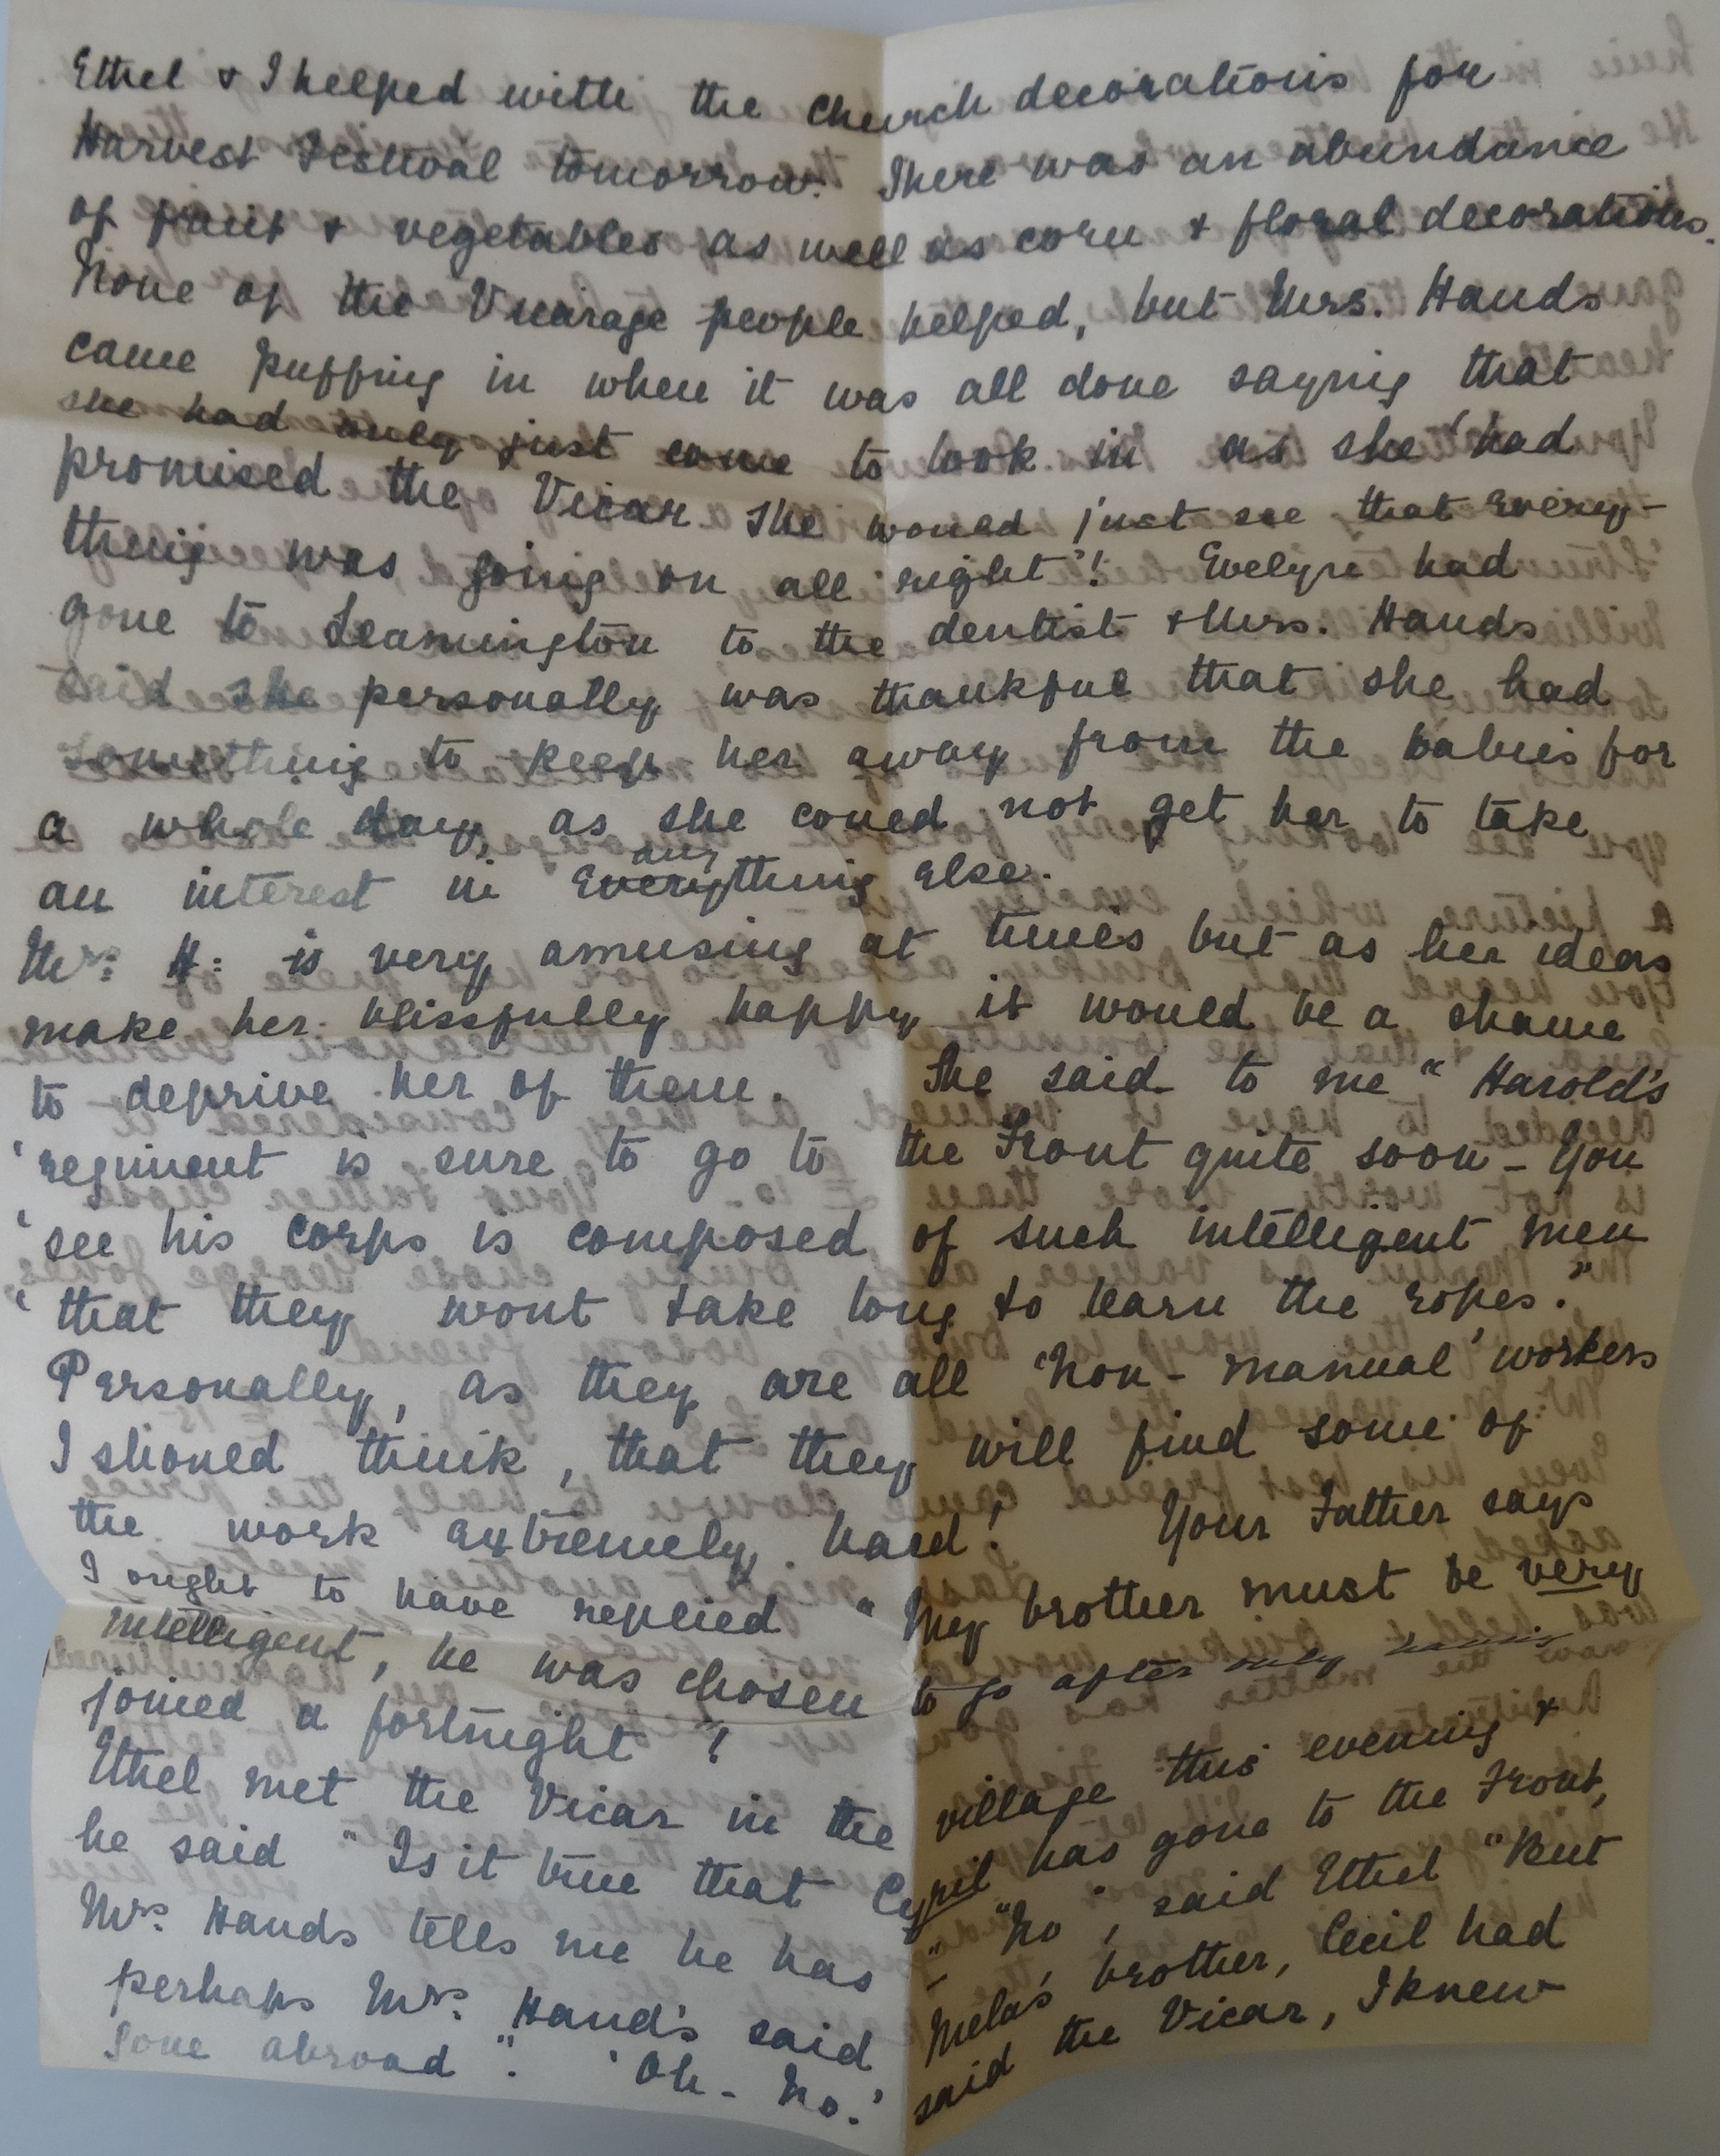 Ethel & I helped with the church decorations for
Harvest Festival tomorrow. There was an abundance
of fruit & vegetables as well as corn & floral decorations.
None of the Vicarage people helped, but Mrs. Hands
came puffing in when it was all done saying that
she had only just come to look in as she 'had
promised the Vicar she would just see that every-
thing was going on all right'! Evelyn had
gone to Leamington to the dentist & Mrs. Hands
said she personally was thankful that she had
something to keep her away from the babies for
a whole day, as she could not get her to take
an interest in everything any else.
Mrs. H: is very amusing at times but as her ideas
make her blissfully happy it would be a shame
to deprive her of them. She said to me "Harold's
'regiment is sure to go to the Front quite soon - You
'see his corps is composed of such intelligent men
'that they wont take long to learn the ropes."
Personally, as they are all 'non-manual' workers
I should think, that they will find some of
the work extremely hard! Your Father says
I ought to have replied "My brother must be very
intelligent, he was chosen to go after only having
joined a fortnight"!
Ethel met the Vicar in the village this evening &
he said "Is it true that Cyril has gone to the Front,
Mrs. Hands tells me he has" - "No", said Ethel "But
perhaps Mrs. Hands said Mela's brother, Cecil had
gone abroad". 'Oh - No.' said the Vicar, I knew